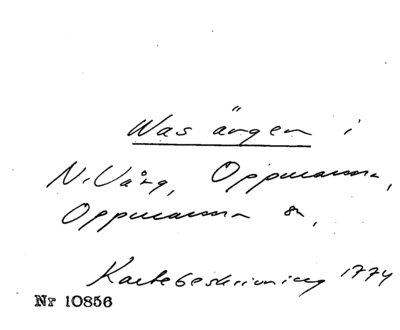 Was ängen i
N. Vång, Oppmanna,
Oppmanna sn,
Kartebeskrivning 1774
Nr 10856